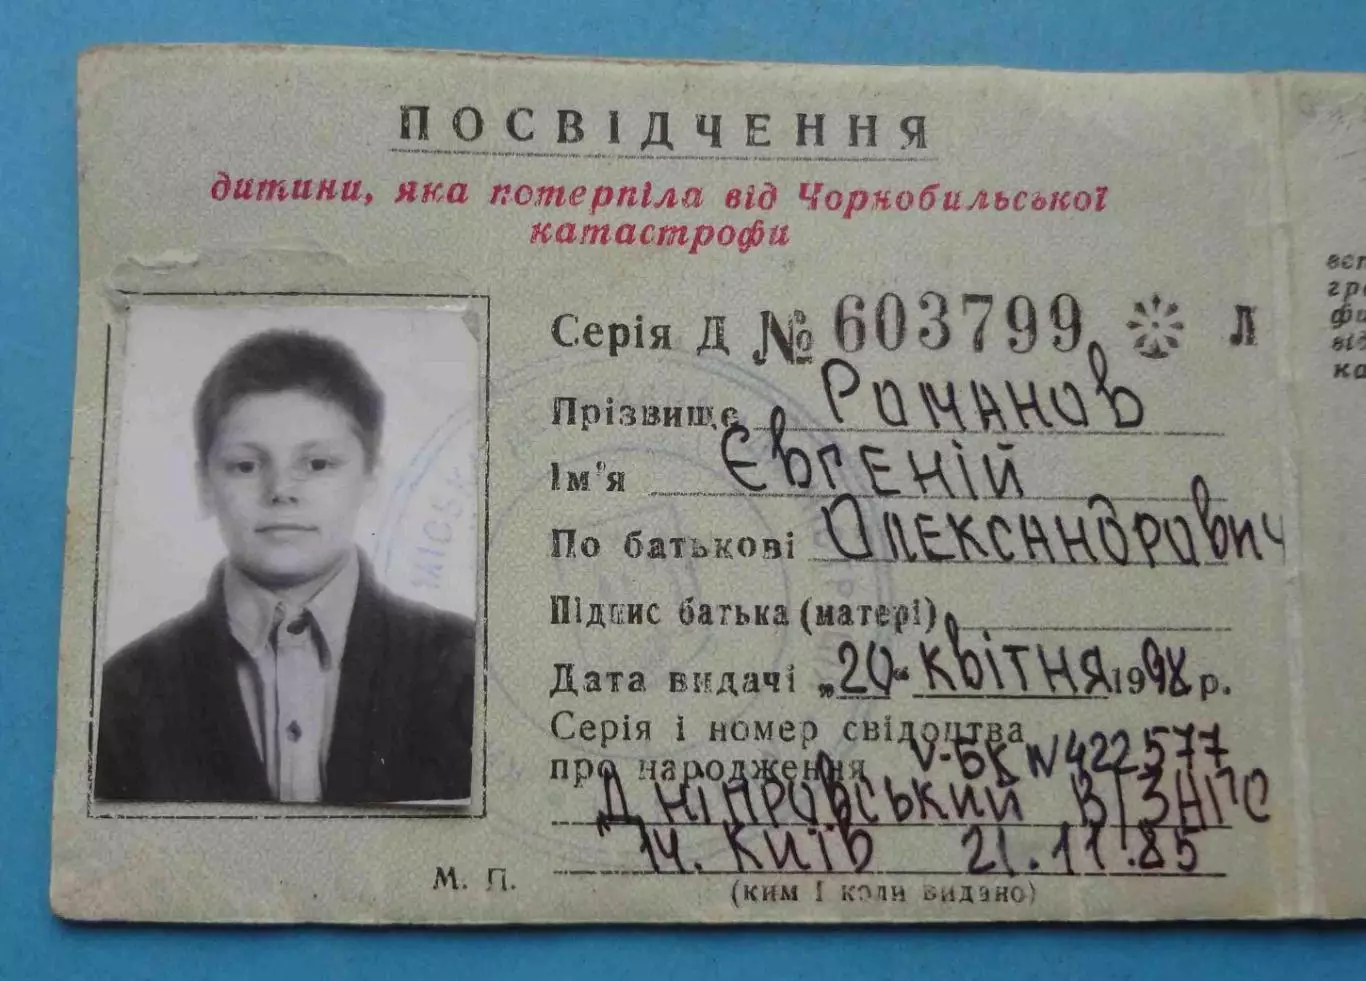 ПОСВІДЧЕННЯ
дитини, яка потерпіла від Чорнобильської
катастрофи
Серія Д № 603799 Л
Прізвище Романов
Ім'я Євгеній
По батькові Олександрович
Підпис батька (матері)
Дата видачі „20“ квітня 1998 р.
Серія і номер свідоцтва
про народження V-БК N 422577
Дніпровський в/ЗАГС
м. Київ 21.11.85
М. П.
(ким і коли видано)